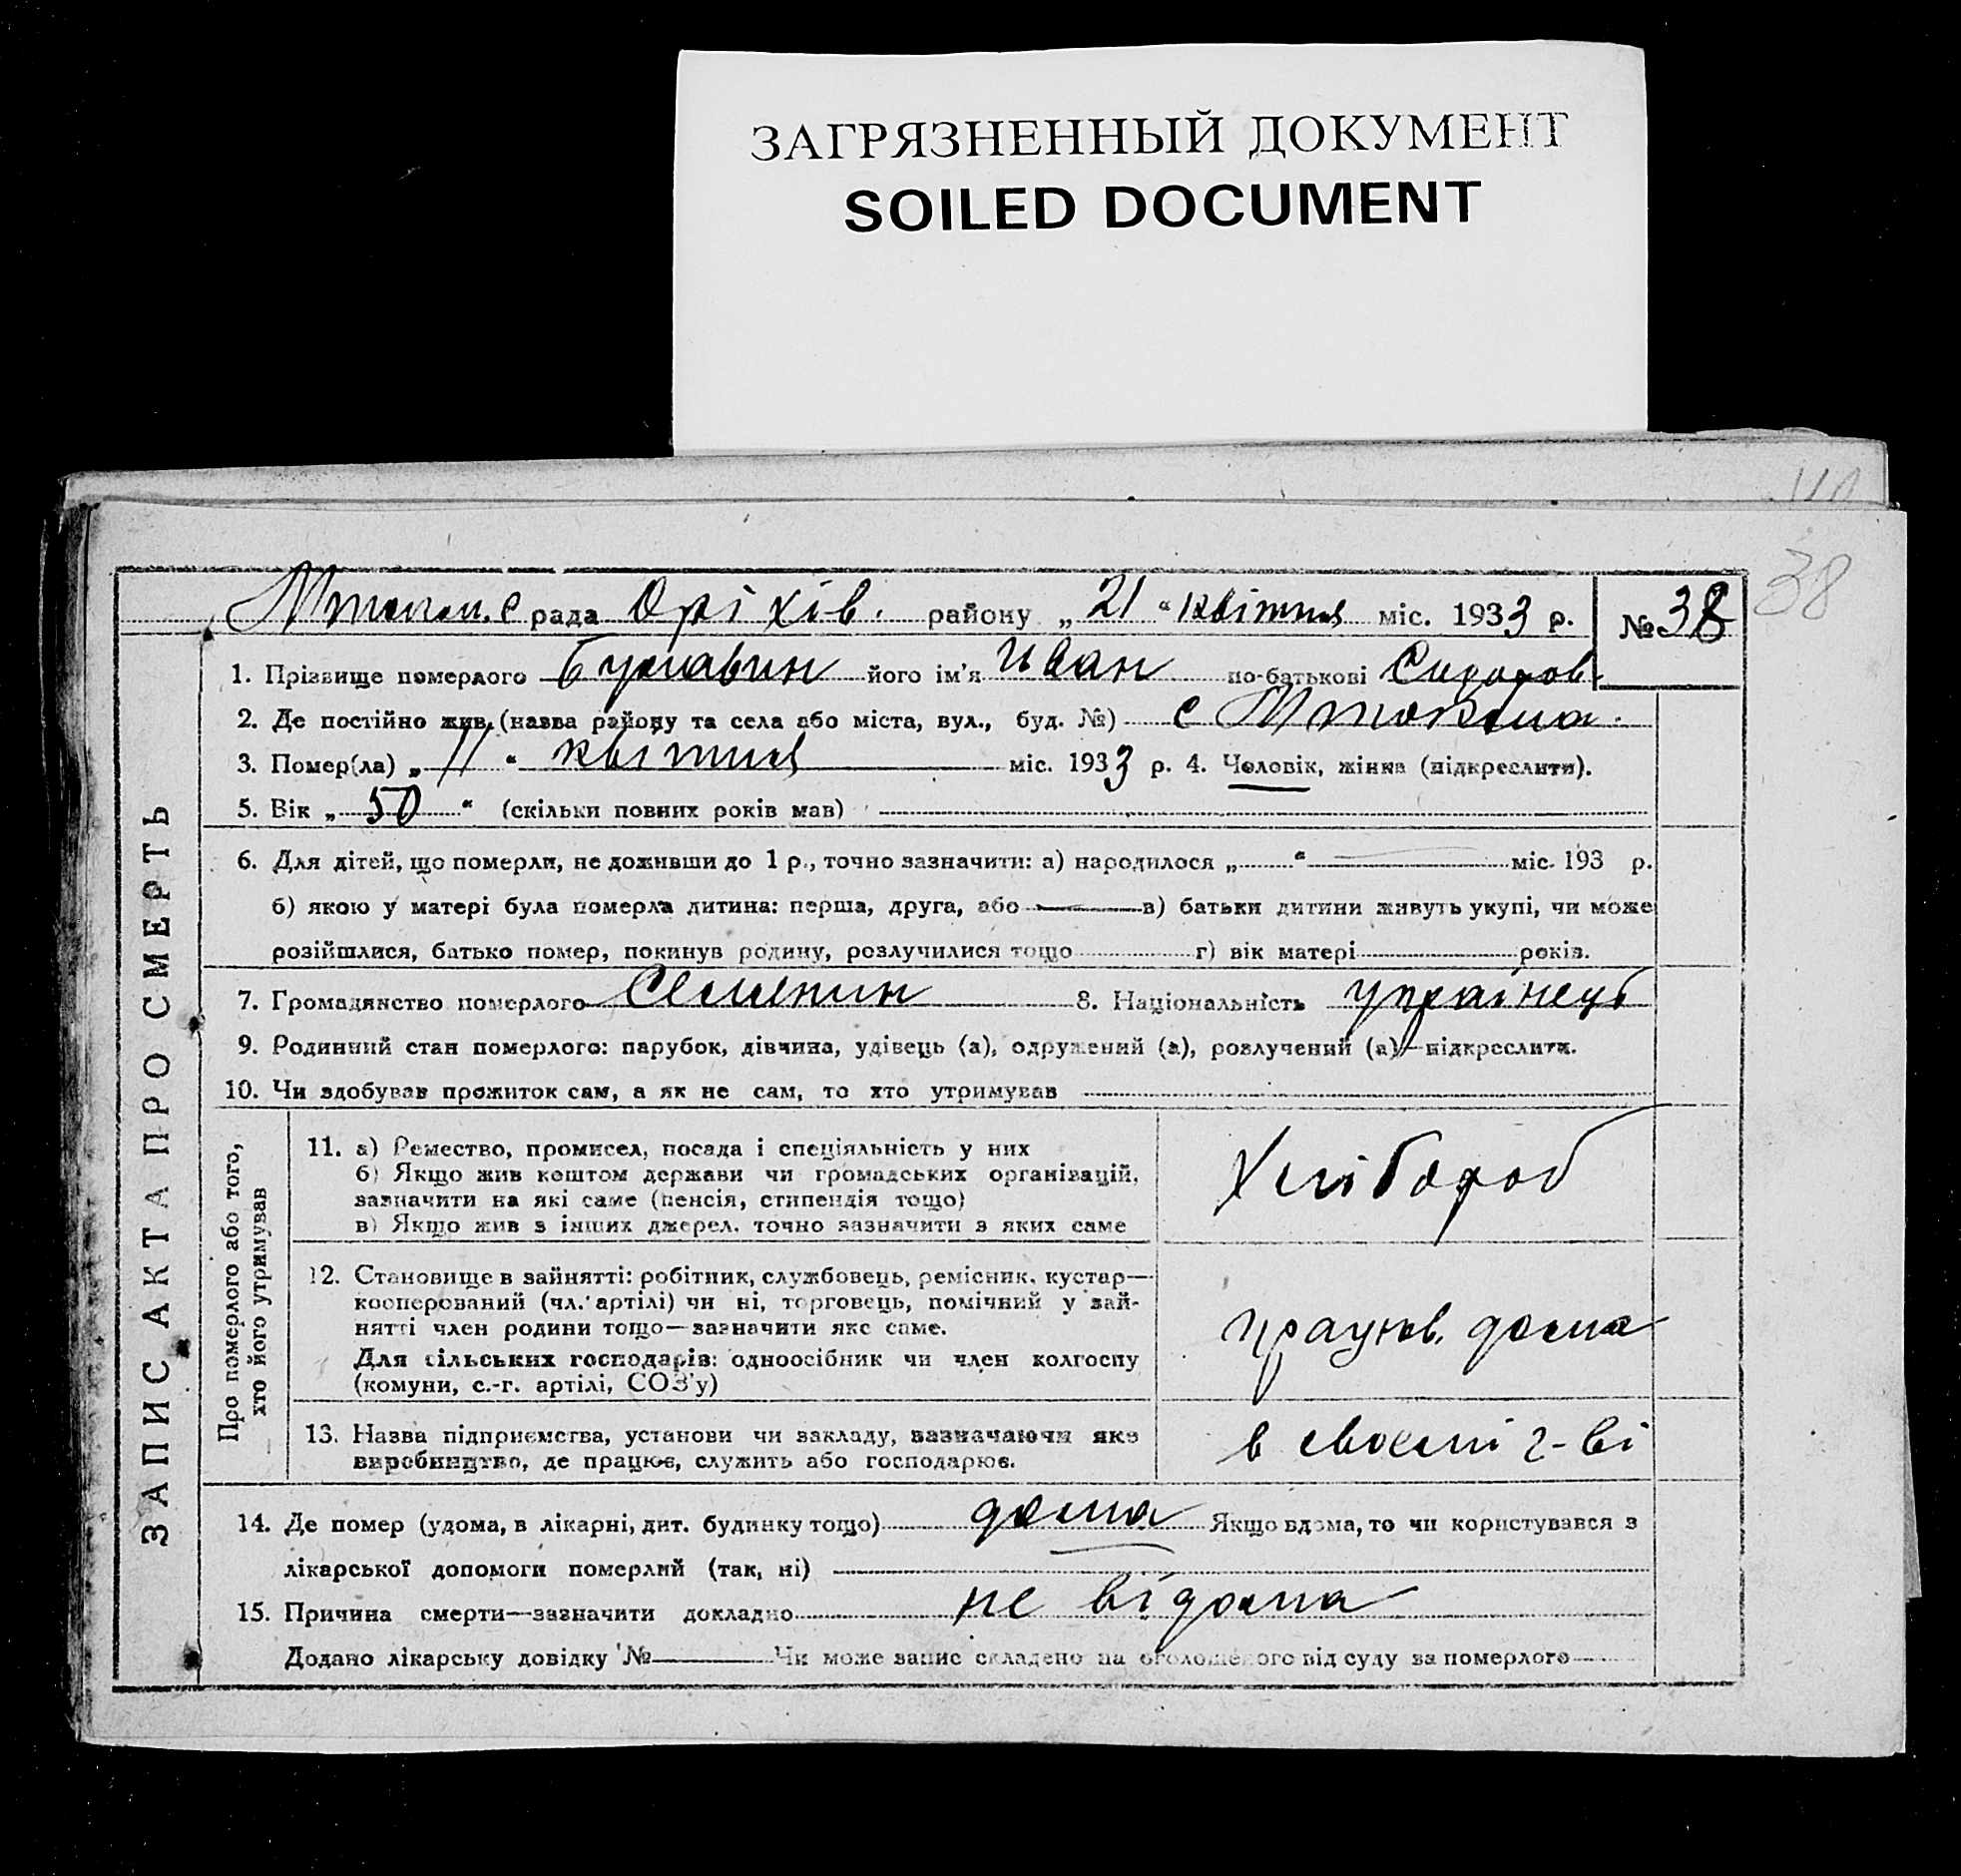 ЗАГРЯЗНЕННЫЙ ДОКУМЕНТ
SOILED DOCUMENT
38
ЗАПИС АКТА ПРО СМЕРТЬ
с рада Оріхів. району „21“ квітня міс. 1933 р. № 38
1. Прізвище померлого його ім'я Иван по-батькові Сидоров.
2. Де постійно жив (назва району та села або міста, вул., буд. №) с
3. Помер(ла) „11“ квітня міс. 1933 р. 4. Чоловік, жінка (підкреслити).
5. Вік „50“ (скільки повних років мав)
6. Для дітей, що померли, не доживши до 1 р., точно зазначити: а) народилося „ “ міс. 193 р.
б) якою у матері була померла дитина: перша, друга, або — в) батьки дитини живуть укупі, чи може
розійшлися, батько помер, покинув родину, розлучилися тощо г) вік матері років.
7. Громадянство померлого Селянин 8. Національність українець
9. Родинний стан померлого: парубок, дівчина, удівець (а), одружений (а), розлучений (а)—підкреслити.
10. Чи здобував прожиток сам, а як не сам, то хто утримував
Про померлого або того,
хто його утримував
11. а) Ремество, промисел, посада і спеціяльність у них
б) Якщо жив коштом держави чи громадських організацій,
зазначити на які саме (пенсія, стипендія тощо)
в) Якщо жив з інших джерел, точно зазначити з яких саме
Хлібороб
12. Становище в зайнятті: робітник, службовець, ремісник, кустар—
кооперований (чл. артілі) чи ні, торговець, помічний у зай-
нятті член родини тощо—зазначити яке саме.
Для сільських господарів: одноосібник чи член колгоспу
(комуни, с.-г. артілі, СОЗ'у)
працюв. дома
13. Назва підприємства, установи чи закладу, зазначаючи яке
виробництво, де працює, служить або господарює.
в своєм г-ві
14. Де помер (удома, в лікарні, дит. будинку тощо) дома Якщо вдома, то чи користувався з
лікарської допомоги померлий (так, ні)
15. Причина смерти—зазначити докладно не відома
Додано лікарську довідку № Чи може запис складено на оголошеного від суду за померлого